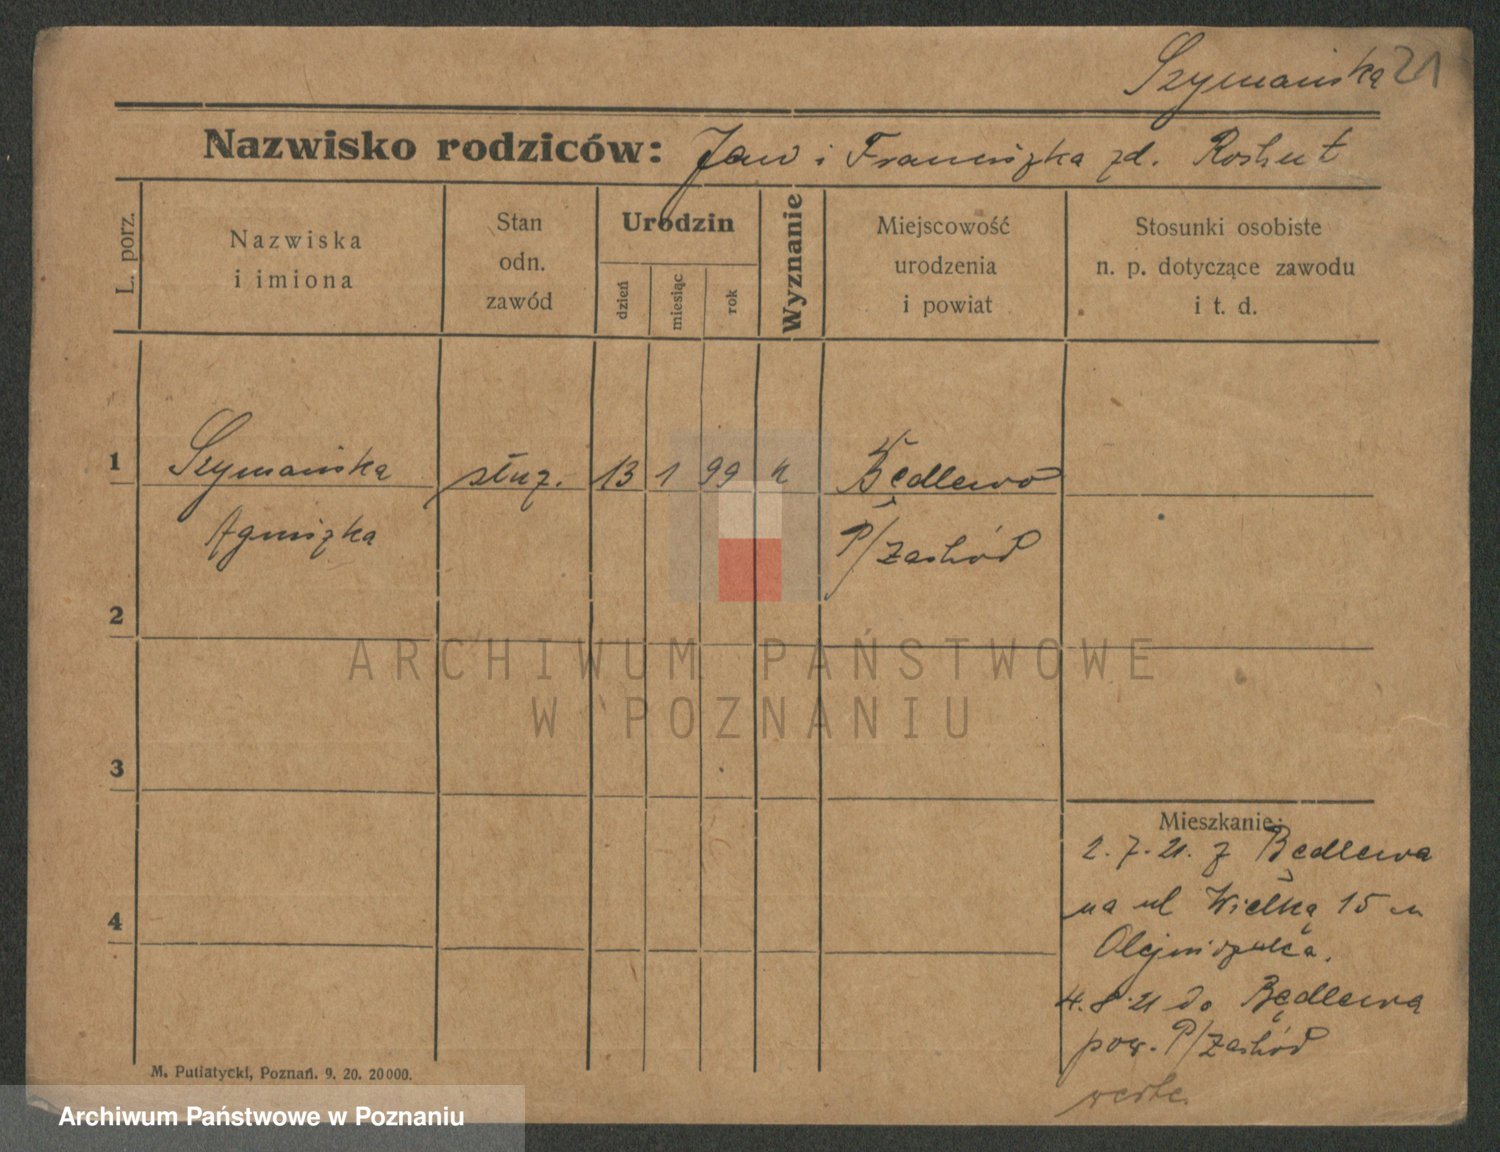 Szymańska 21
Nazwisko rodziców: Jan i Franciszka zd.
L. porz.
Nazwiska
i imiona
Stan
odn.
zawód
Urodzin
dzień
miesiąc
rok
Wyznanie
Miejscowość
urodzenia
i powiat
Stosunki osobiste
n. p. dotyczące zawodu
i t. d.
1 Szymańska służ. 13 1 99 k Będlewo
Agniszka P/Zachód
2
ARCHIWUM PAŃSTWOWE
W POZNANIU
3
Mieszkanie:
2.7.21. z Będlewa
na ul Wielką 15 u
Olejniczaka.
4
4.8.21 do Będlewa
pow. P/Zachód
M. Putiatycki, Poznań. 9. 20. 20000.
Archiwum Państwowe w Poznaniu